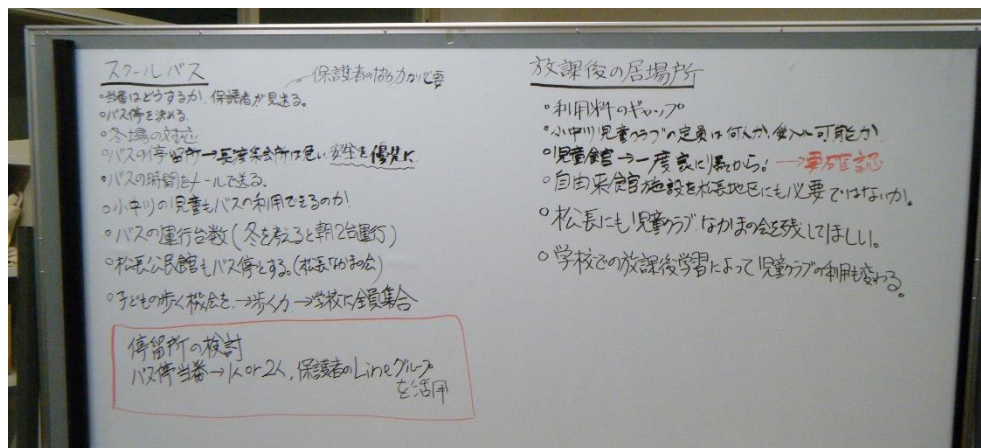 スクールバス
保護者の協力が必要
・当番はどうするか、保護者が見送る。
・バス停を決める
・冬場の対応
・バスの停留所→長渡集会所は危い安全を優先に
・バスの時間をメールで送る。
・小中川の児童もバスの利用できるのか
・バスの運行台数(冬を考えると朝2台運行)
・松長公民館もバス停とする。(松長なかまの会)
・子どもの歩く機会を→歩く力→学校に全員集合
停留所の検討
バス停当番→1人or2人,保護者のLineグループ
を活用
放課後の居場所
・利用料のギャップ
・小中川児童クラブの定員は何人か、受入れ可能か
・児童館→一度家に帰から。→要確認
・自由来館施設を松長地区にも必要ではないか。
・松長にも児童クラブ、なかまの会を残してほしい。
・学校での放課後学習によって児童クラブの利用も変わる。